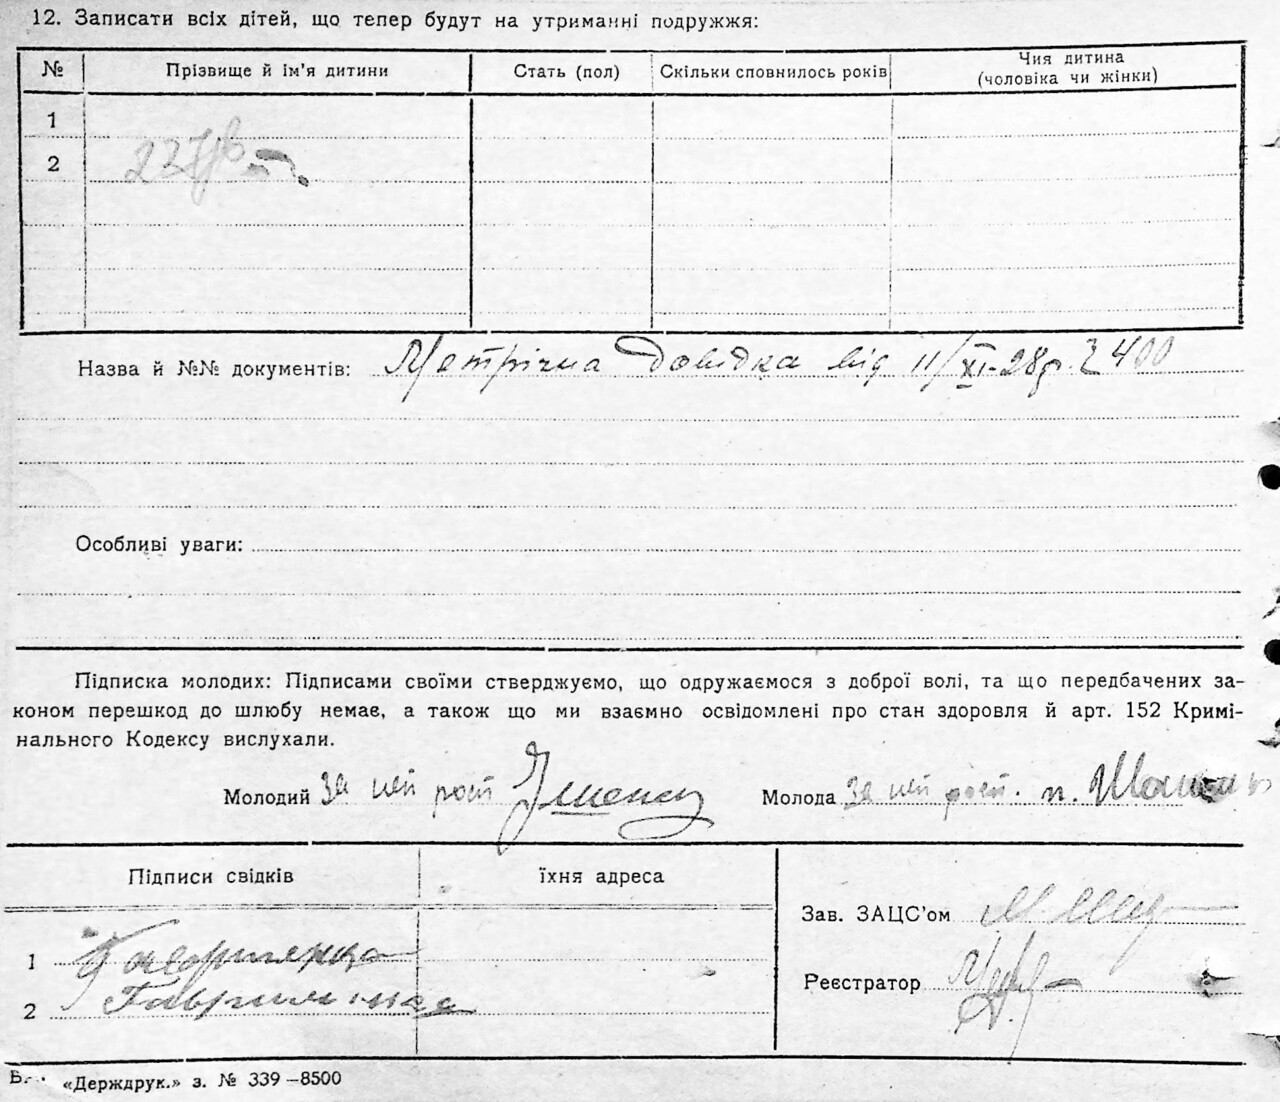 12. Записати всіх дітей, що тепер будут на утриманні подружжя:
№ Прізвище й ім'я дитини Стать (пол) Скільки сповнилось років Чия дитина (чоловіка чи жінки)
1
2
Назва й №№ документів: Метрічна довідка від 11/XI-28р. № 400
Особливі уваги:
Підписка молодих: Підписами своїми стверджуємо, що одружаємося з доброї волі, та що передбачених за-
коном перешкод до шлюбу немає, а також що ми взаємно освідомлені про стан здоровля й арт. 152 Кримі-
нального Кодексу вислухали.
Молодий За неп розп Молода За неп розп. п.
Підписи свідків їхня адреса
Зав. ЗАЦС'ом
1
Реєстратор
2
«Держдрук.» з. № 339–8500